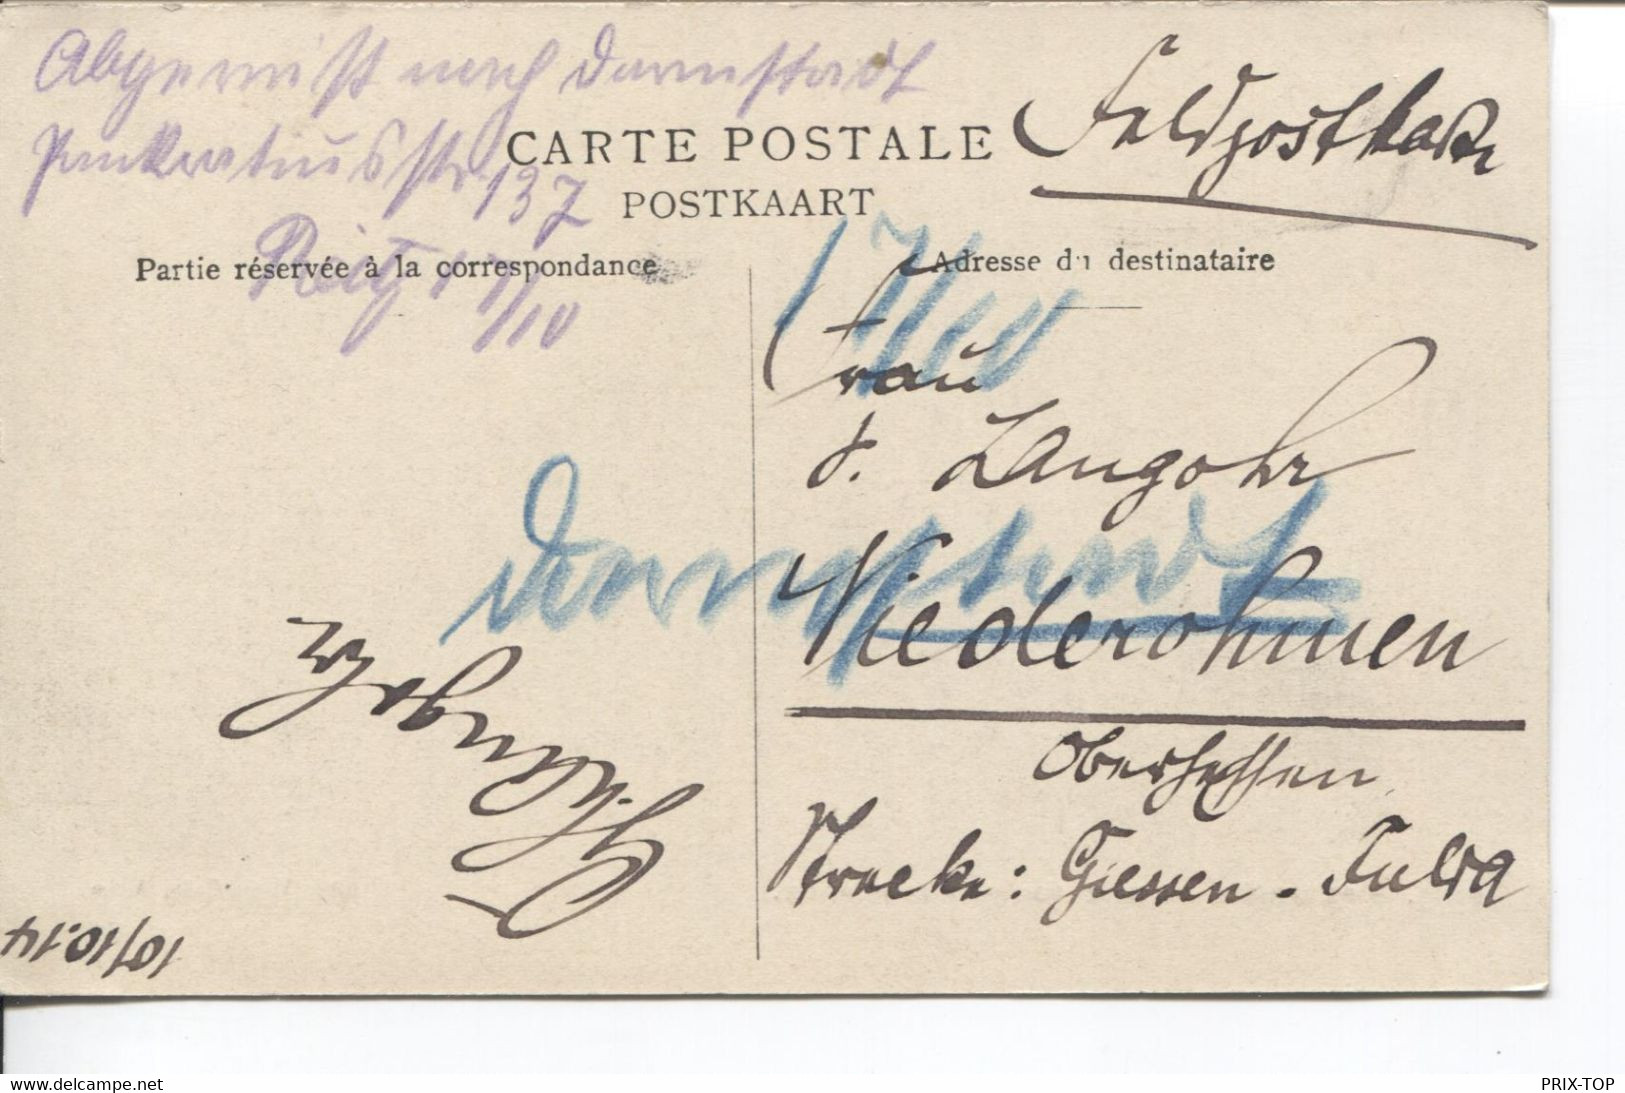 Abgereist nach Darmstadt
Pankratiusstr 137
17/10
CARTE POSTALE
POSTKAART
Feldpostkarte
Partie réservée à la correspondance
Adresse du destinataire
17/10
Frau
J. Langohr
Darmstadt
Niederohmen
Oberhessen
Strecke: Giessen - Fulda
Langohr
10/10.14
www.delcampe.net
PRIX-TOP